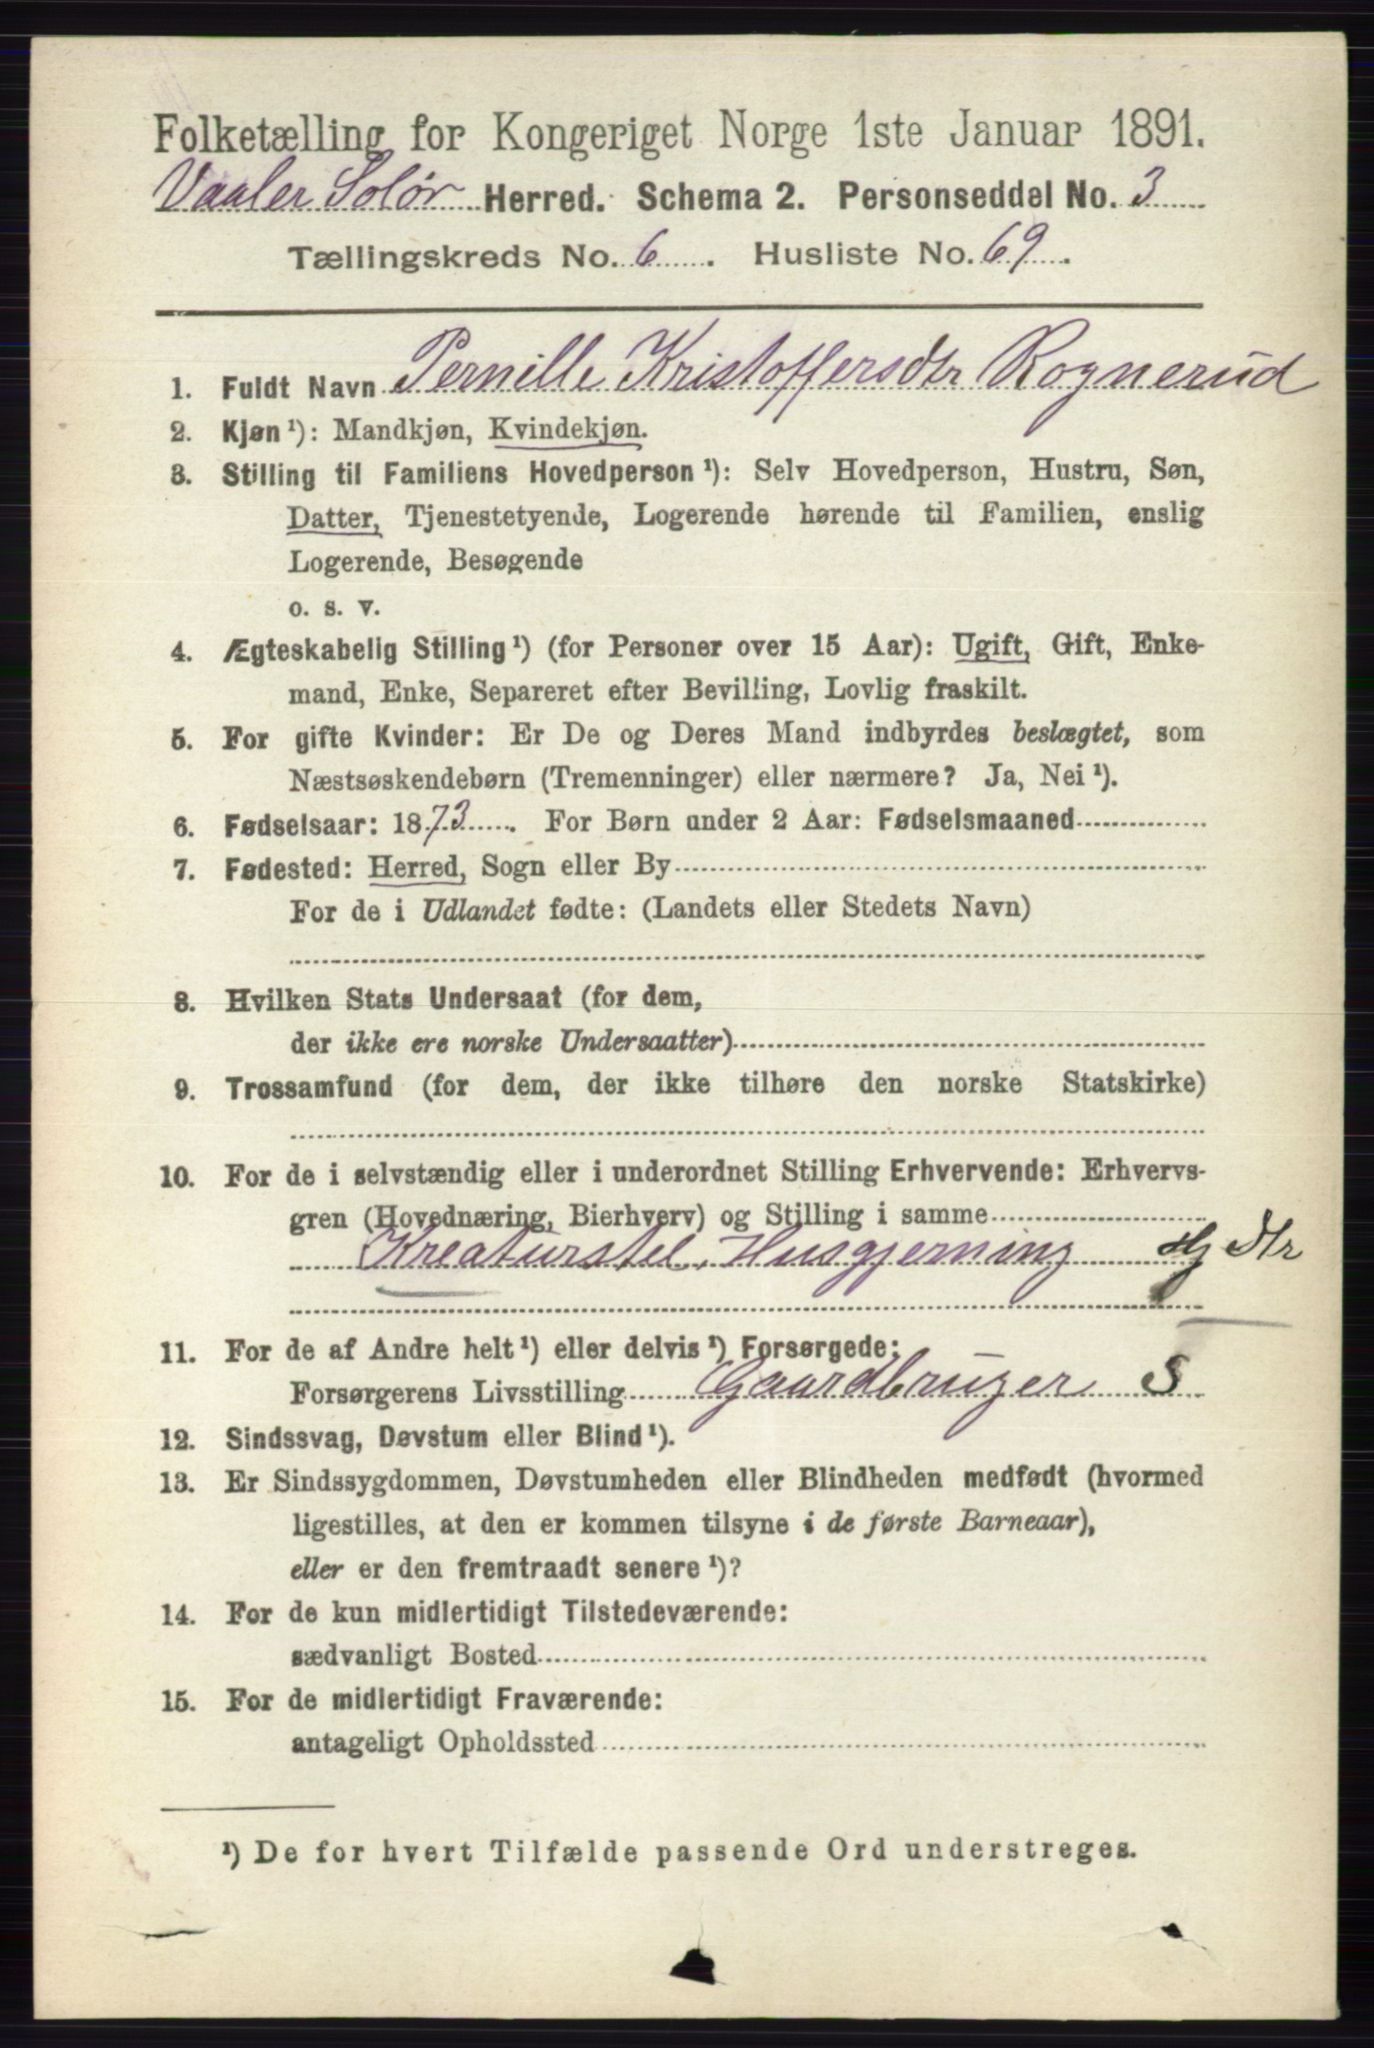 Folketælling for Kongeriget Norge 1ste Januar 1891.
Vaaler Solør Herred. Schema 2. Personseddel No. 3
Tællingskreds No. 6. Husliste No. 69.
1. Fuldt Navn Pernille Kristoffersdtr Rognerud
2. Kjøn ¹): Mandkjøn, Kvindekjøn.
3. Stilling til Familiens Hovedperson ¹): Selv Hovedperson, Hustru, Søn,
Datter, Tjenestetyende, Logerende hørende til Familien, enslig
Logerende, Besøgende
o. s. v.
4. Ægteskabelig Stilling ¹) (for Personer over 15 Aar): Ugift, Gift, Enke-
mand, Enke, Separeret efter Bevilling, Lovlig fraskilt.
5. For gifte Kvinder: Er De og Deres Mand indbyrdes beslægtet, som
Næstsøskendebørn (Tremenninger) eller nærmere? Ja, Nei ¹).
6. Fødselsaar: 1873. For Børn under 2 Aar: Fødselsmaaned
7. Fødested: Herred, Sogn eller By
For de i Udlandet fødte: (Landets eller Stedets Navn)
8. Hvilken Stats Undersaat (for dem,
der ikke ere norske Undersaatter)
9. Trossamfund (for dem, der ikke tilhøre den norske Statskirke)
10. For de i selvstændig eller i underordnet Stilling Erhvervende: Erhvervs-
gren (Hovednæring, Bierhverv) og Stilling i samme
Kreaturstel, Husgjerning
11. For de af Andre helt ¹) eller delvis ¹) Forsørgede:
Forsørgerens Livsstilling Gaardbruger S
12. Sindssvag, Døvstum eller Blind ¹).
13. Er Sindssygdommen, Døvstumheden eller Blindheden medfødt (hvormed
ligestilles, at den er kommen tilsyne i de første Barneaar),
eller er den fremtraadt senere ¹)?
14. For de kun midlertidigt Tilstedeværende:
sædvanligt Bosted
15. For de midlertidigt Fraværende:
antageligt Opholdssted
¹) De for hvert Tilfælde passende Ord understreges.